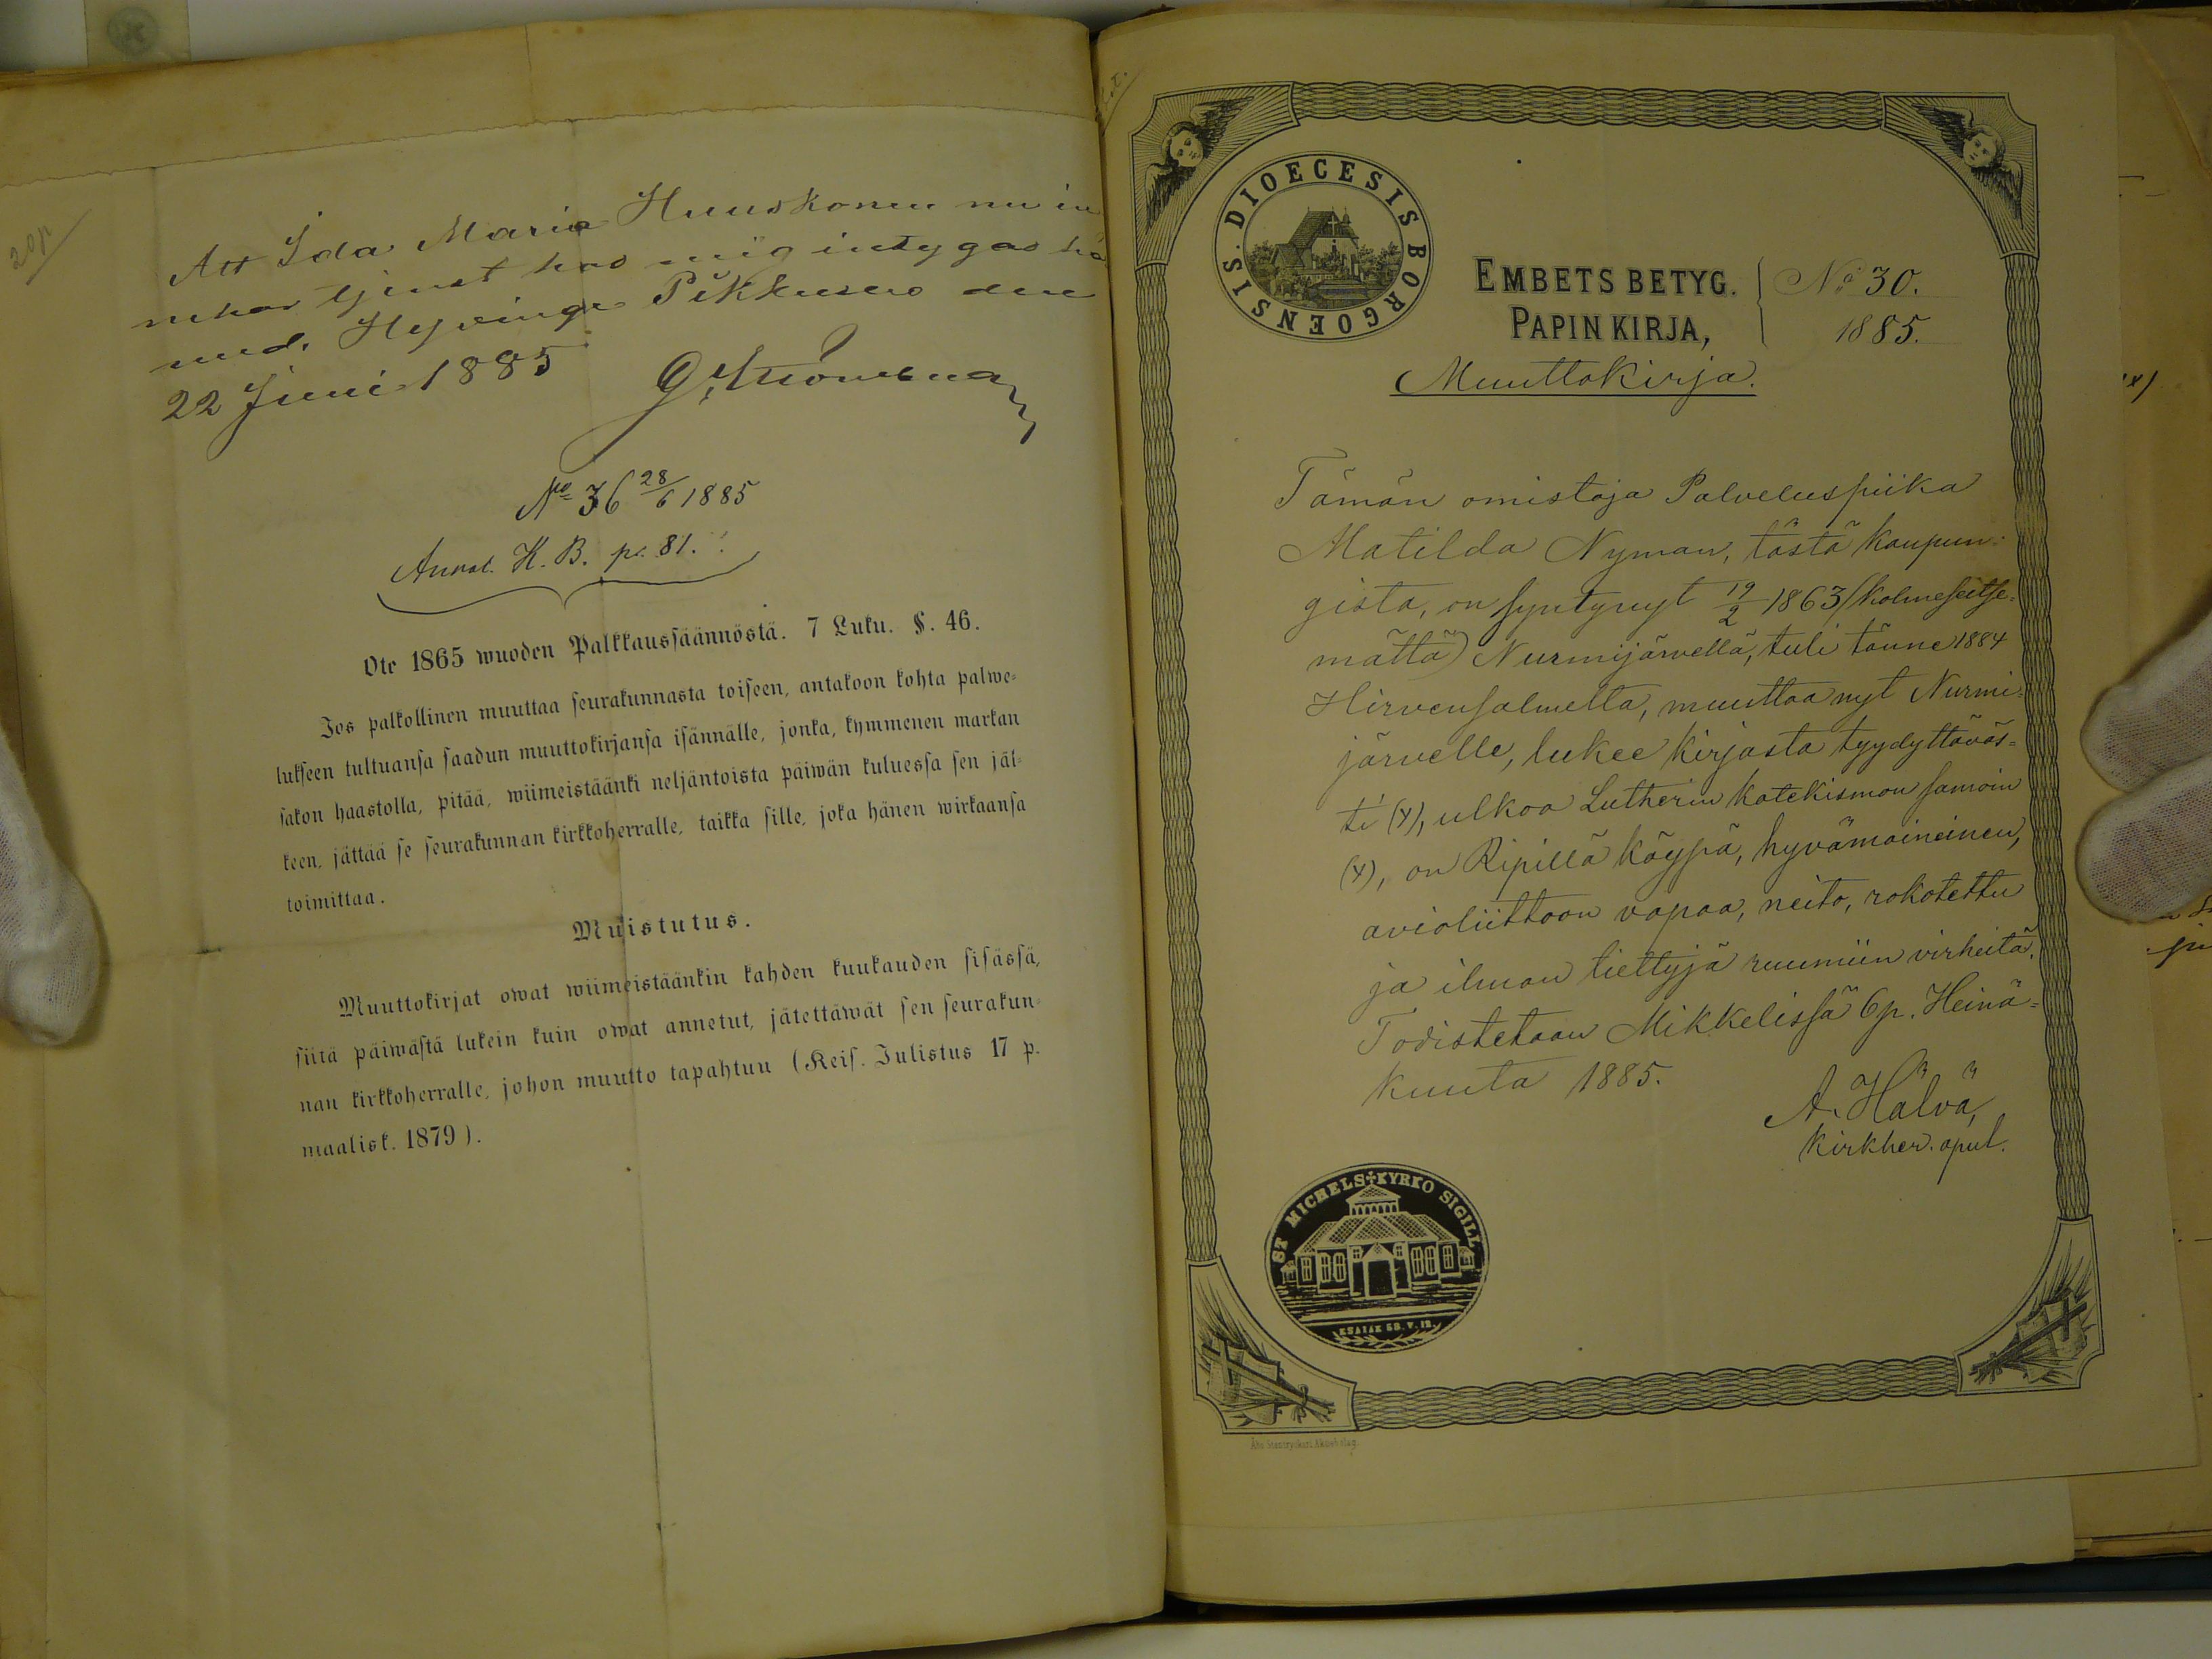 20p
Att Ida Maria Huuskonen nu in
nehar tjenst hos mig intygas hä
med. Hyvinge Pikkusuo den
22 Juni 1885
No 36 28/6 1885
Annot. K. B. p. 81.
Ote 1865 wuoden Palkkaussäännöstä. 7 Luku. §. 46.
Jos palkollinen muuttaa seurakunnasta toiseen, antakoon kohta palwe-
lukseen tultuansa saadun muuttokirjansa isännälle, jonka, kymmenen markan
sakon haastolla, pitää, wiimeistäänki neljäntoista päiwän kuluessa sen jäl-
keen, jättää se seurakunnan kirkkoherralle, taikka sille, joka hänen wirkaansa
toimittaa.
Muistutus.
Muuttokirjat owat wiimeistäänkin kahden kuukauden sisässä,
siitä päiwästä lukein kuin owat annetut, jätettäwät sen seurakun-
nan kirkkoherralle, johon muutto tapahtuu (Keis. Julistus 17 p.
maalisk. 1879).
DIOECESIS BORGOENSIS.
EMBETS BETYG.
PAPIN KIRJA,
No 30.
1885.
Muuttokirja.
Tämän omistaja Palveluspiika
Matilda Nyman, tästä kaupun-
gista, on syntynyt 19/2 1863 (kolmeseitse-
mättä) Nurmijärvellä, tuli tänne 1884
Hirvensalmelta, muuttaa nyt Nurmi-
järvelle, lukee kirjasta tyydyttäväs-
ti (y), ulkoa Lutherin katekismon samoin
(y), on Ripillä käypä, hyvämaineinen,
avioliittoon vapaa, neito, rokotettu
ja ilman tiettyjä ruumiin virheitä.
Todistetaan Mikkelissä 6 p. Heinä-
kuuta 1885.
A. Hälvä,
kirkher. apul.
ST MICHELS KYRKO SIGILL
ESAIAE 58. V. 12.